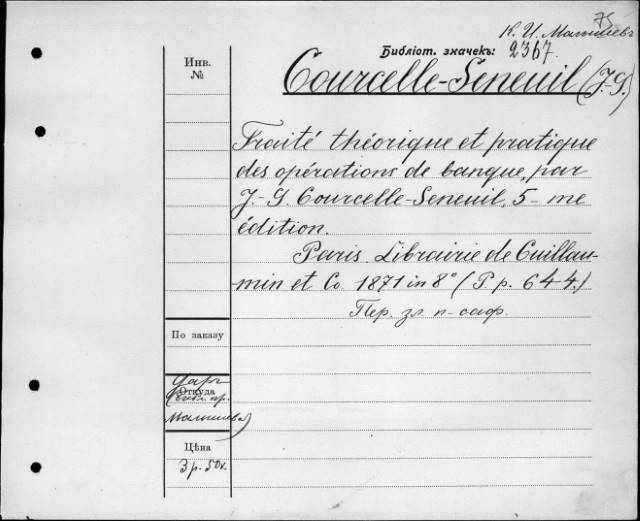 75
К. И. Малышевъ
Библіот. значекъ: 2367.
Инв.
№
Courcelle-Seneuil (J.-G.)
Traité théorique et pratique
des opérations de banque, par
J.-G. Courcelle-Seneuil, 5-me
édition.
Paris. Librairie de Guillau-
min et Co. 1871 in 8° (P. p. 644.)
Пер. зл. п-саф.
По заказу
Даръ
Откуда
Малышева)
Цѣна
3 р. 50 к.